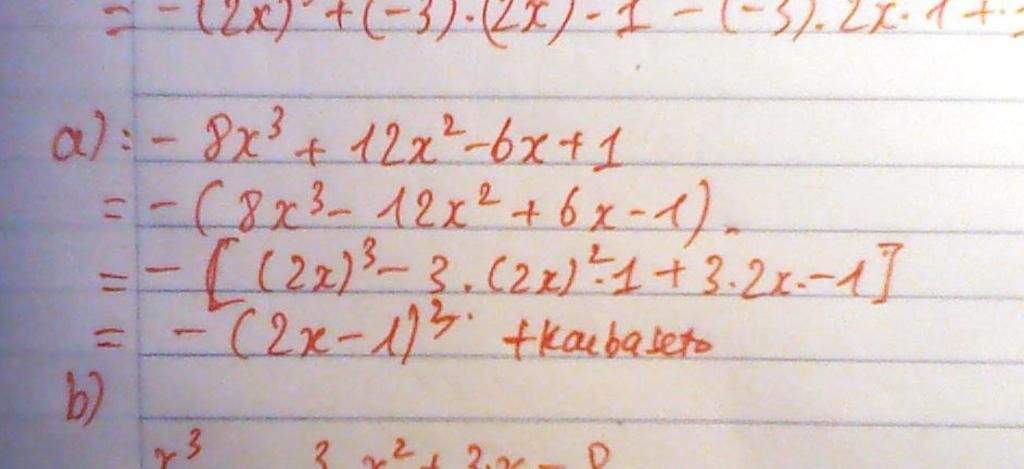 = - (2x)³ + (-3).(2x).1 - (-3).2x.1 +
a): - 8x³ + 12x² - 6x + 1
= - ( 8x³ - 12x² + 6x - 1 ).
= - [ (2x)³ - 3.(2x)².1 + 3.2x. - 1 ]
= - (2x - 1)³. +Kaibaseto
b)
x³ 3 x² + 3.x - 8